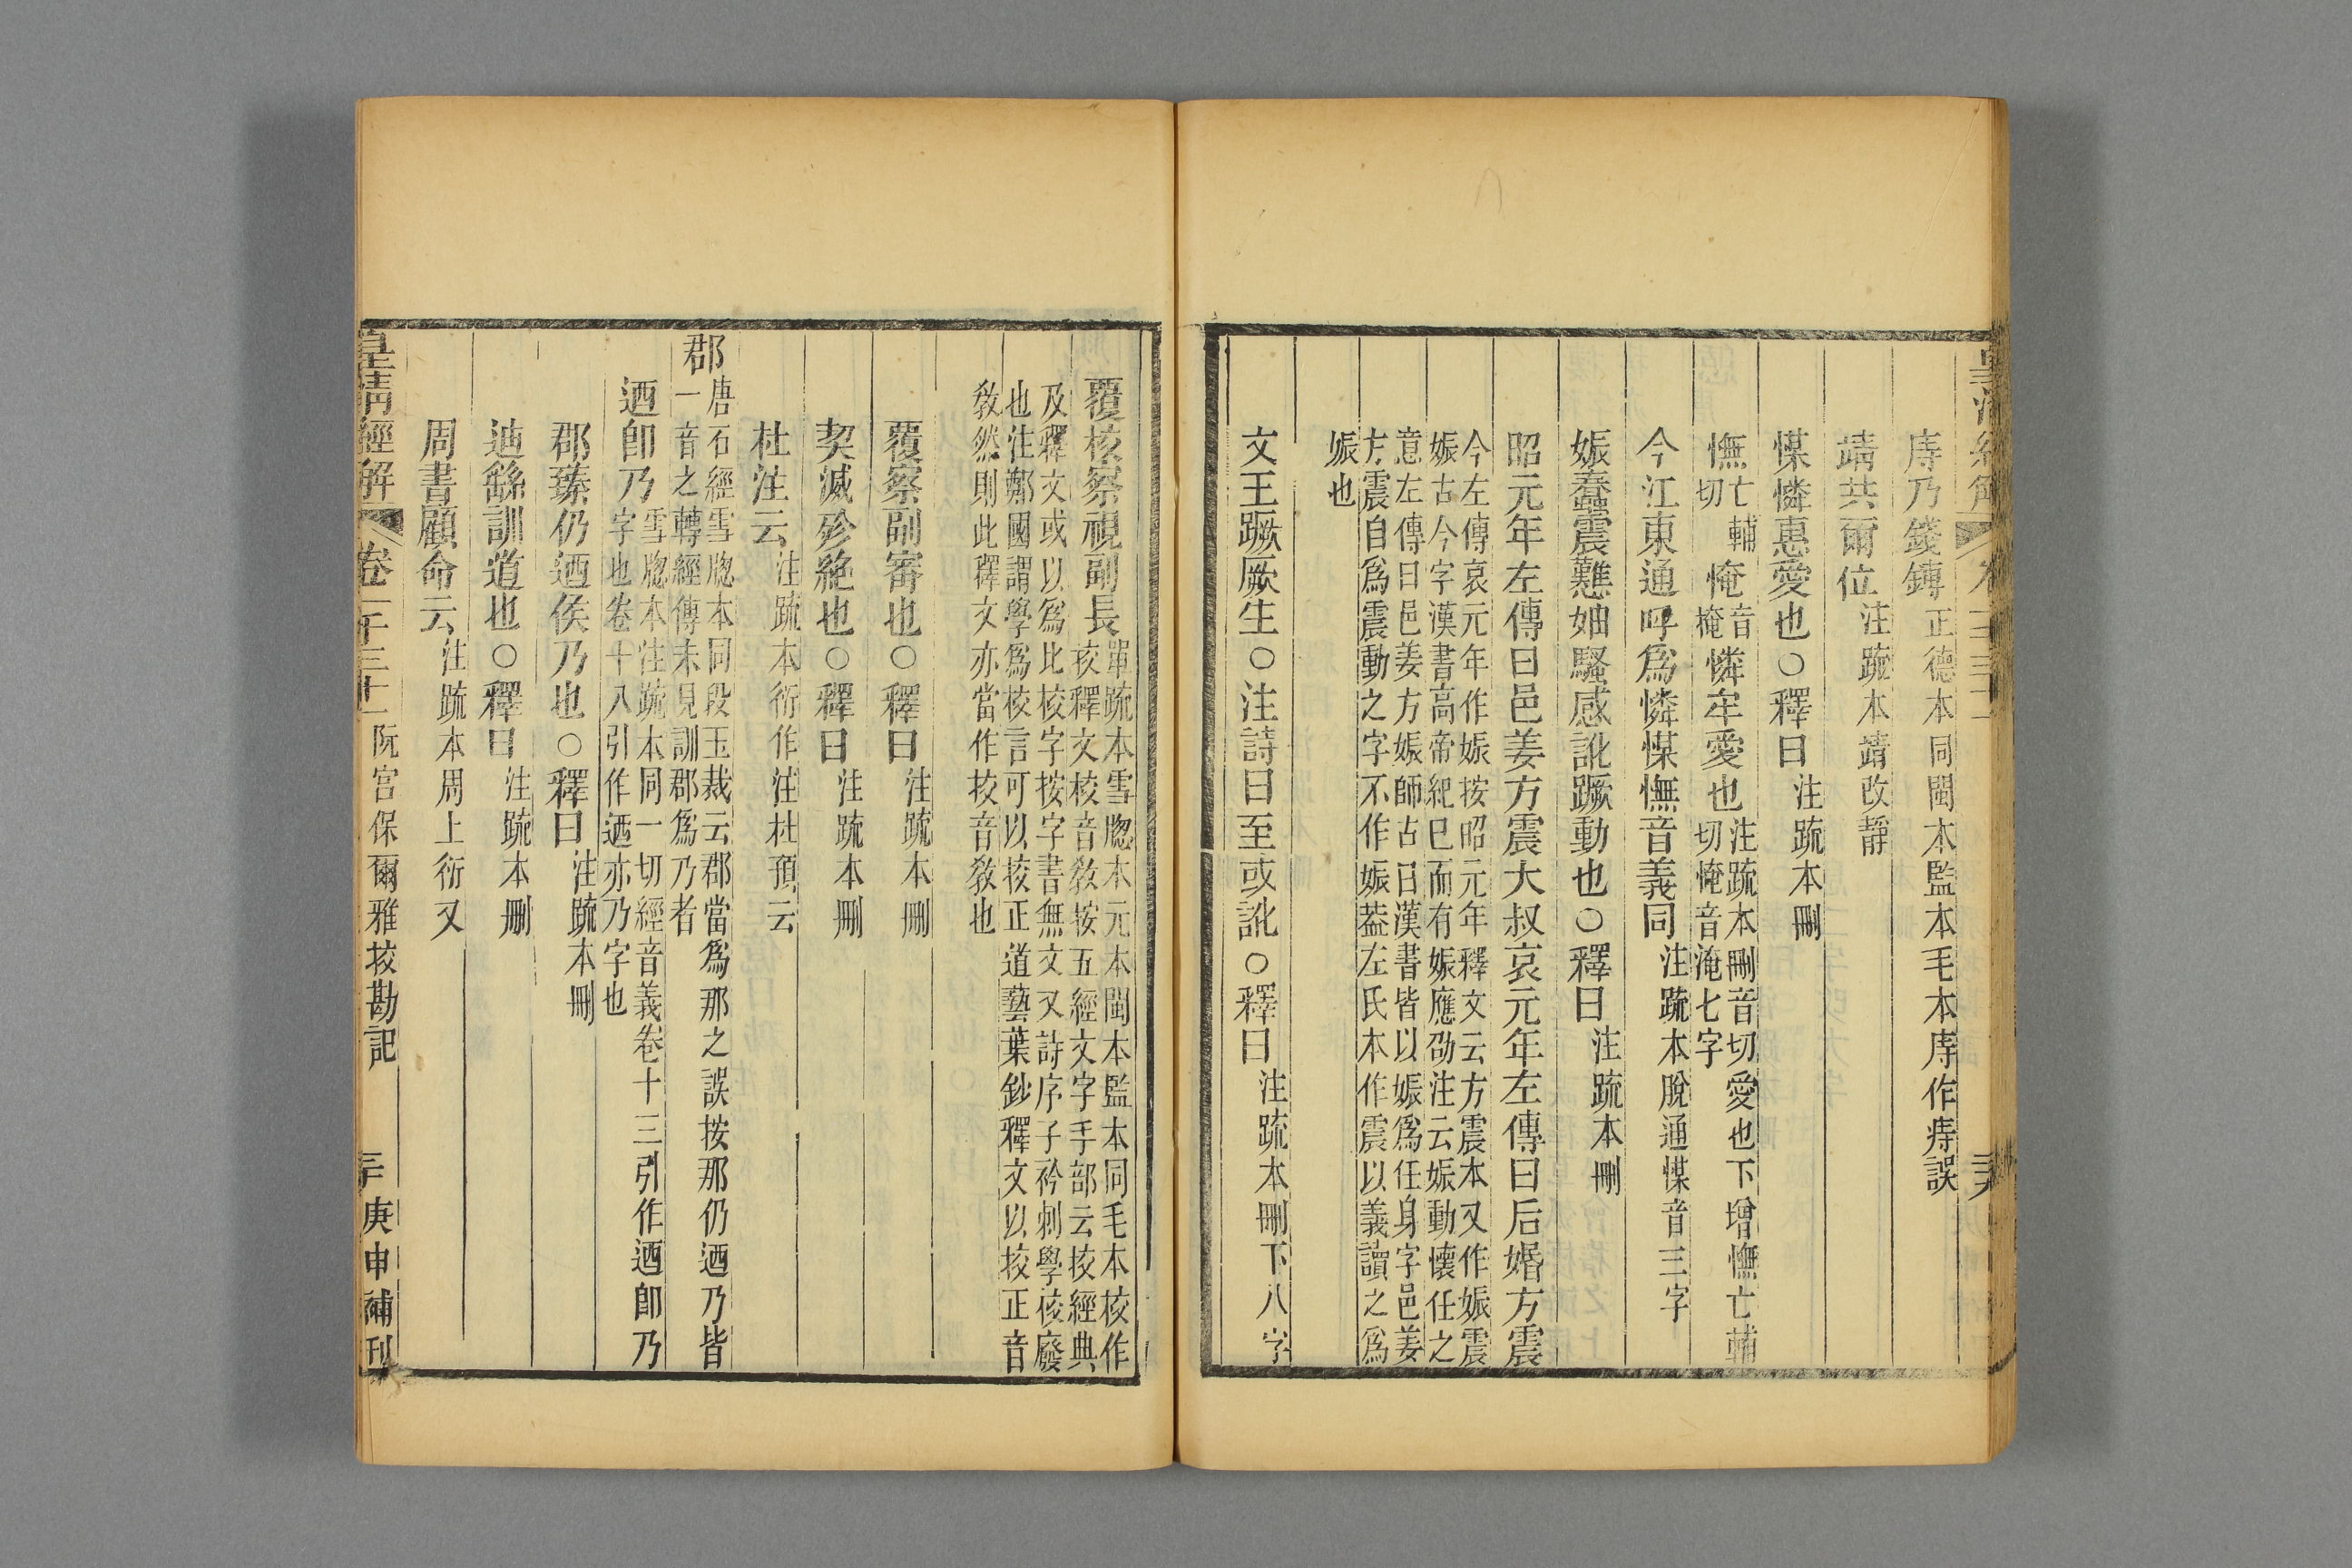 庤乃錢鎛正德本同閩本監本毛本庤作痔誤
靖共爾位注疏本靖改靜
煤憐惠愛也○釋曰注疏本刪
憮亡輔切㤿音掩憐牟愛也注疏本刪音切愛也下增憮亡輔切㤿音淹七字
今江東通呼爲憐煤憮音義同注疏本脫通煤音三字
娠蠢震戁妯騷感訛蹶動也○釋曰注疏本刪
昭元年左傳曰邑姜方震大叔哀元年左傳曰后婚方震
今左傳哀元年作娠按昭元年釋文云方震本又作娠震
娠古今字漢書高帝紀已而有娠應劭注云娠動懷任之
意左傳曰邑姜方娠師古曰漢書皆以娠爲任身字邑姜
方震自爲震動之字不作娠葢左氏本作震以義讀之爲
娠也
文王蹶厥生○注詩曰至或訛○釋曰注疏本刪下八字
覆校察視副長單疏本雪牕本元本閩本監本同毛本校作
挍釋文校音教按五經文字手部云挍經典
及釋文或以爲比校字按字書無文又詩序子衿刺學挍廢
也注鄭國謂學爲校言可以挍正道藝葉鈔釋文以挍正音
教然則此釋文亦當作挍音教也
覆察副審也○釋曰注疏本刪
契滅殄絶也○釋曰注疏本刪
杜注云注疏本衍作注杜預云
郡唐石經雪牕本同段玉裁云郡當爲那之誤按那仍迺乃皆
一音之轉經傳未見訓郡爲乃者
迺卽乃雪牕本注疏本同一切經音義卷十三引作迺卽乃
字也卷十八引作迺亦乃字也
郡臻仍迺侯乃也○釋曰注疏本刪
迪繇訓道也○釋曰注疏本刪
周書顧命云注疏本周上衍又
皇清經解 卷一千三十一 阮宮保爾雅挍勘記 三 庚申補刊